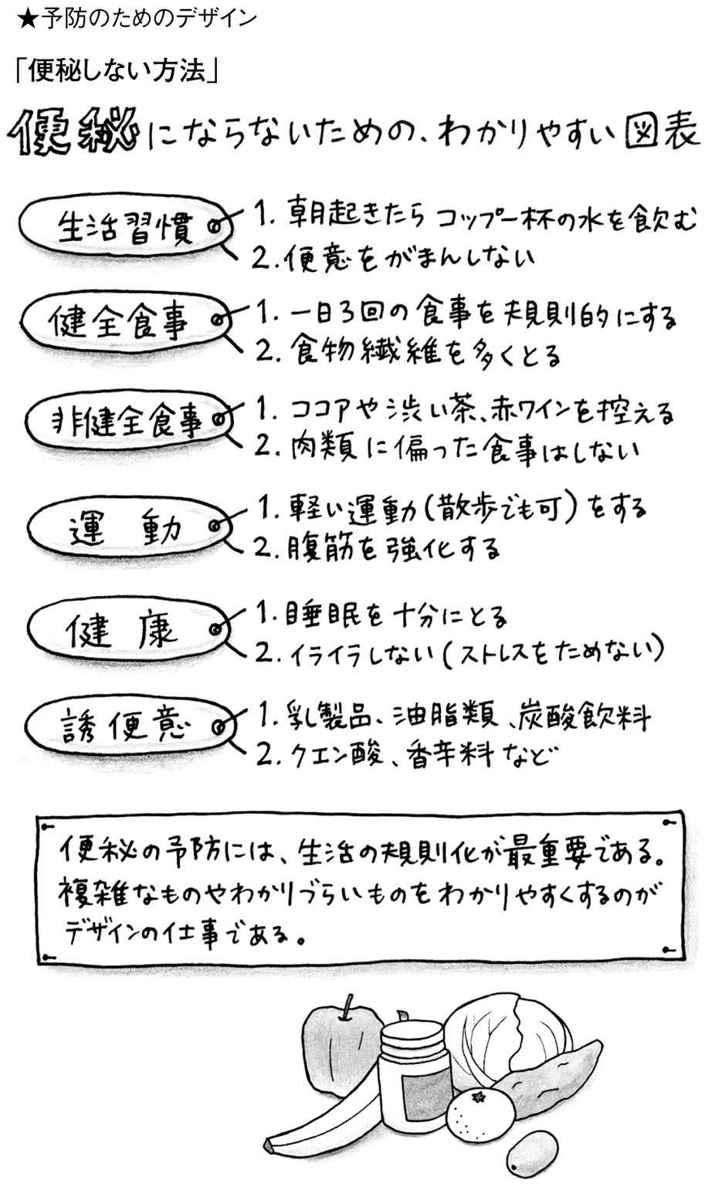 ★予防のためのデザイン
「便秘しない方法」
便秘にならないための、わかりやすい図表
生活習慣
1. 朝起きたらコップ一杯の水を飲む
2. 便意をがまんしない
健全食事
1. 一日3回の食事を規則的にする
2. 食物繊維を多くとる
非健全食事
1. ココアや渋い茶、赤ワインを控える
2. 肉類に偏った食事はしない
運動
1. 軽い運動(散歩でも可)をする
2. 腹筋を強化する
健康
1. 睡眠を十分にとる
2. イライラしない(ストレスをためない)
誘便意
1. 乳製品、油脂類、炭酸飲料
2. クエン酸、香辛料など
便秘の予防には、生活の規則化が最重要である。
複雑なものやわかりづらいものをわかりやすくするのが
デザインの仕事である。